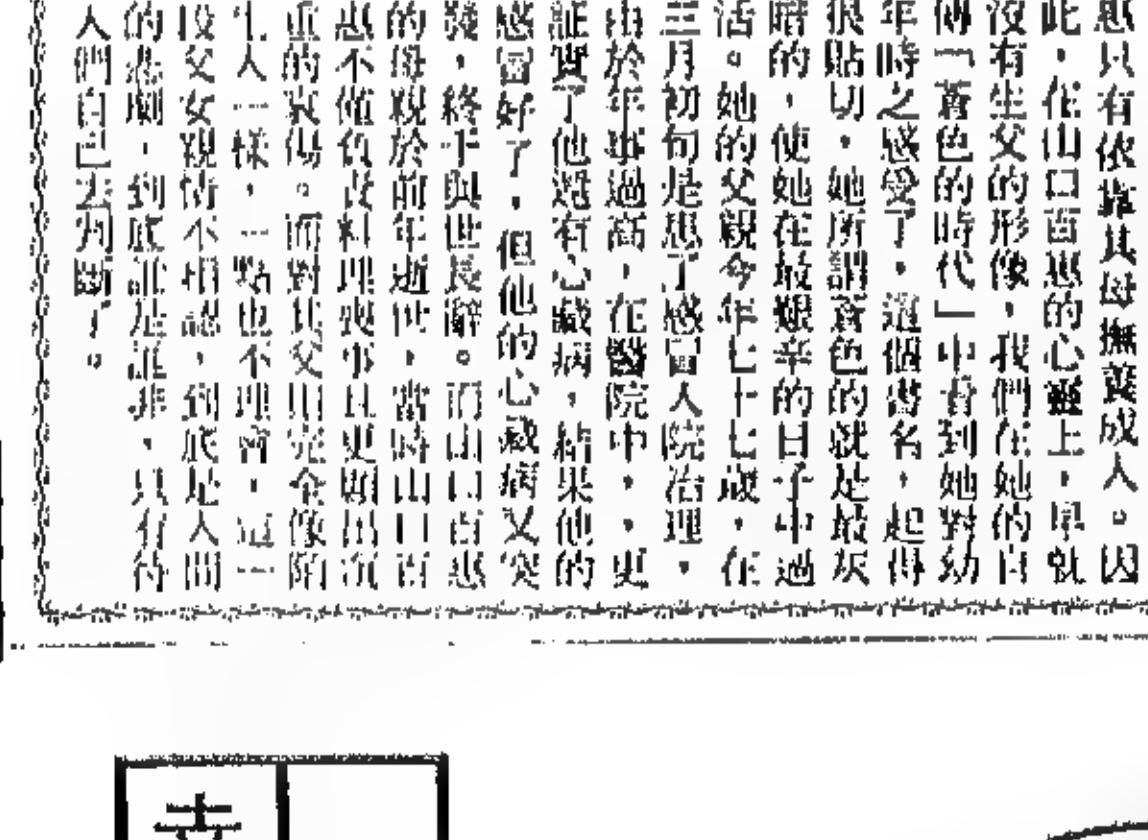 惠只有依靠其母撫養成人。因
此，在山口百惠的心靈上，早就
沒有生父的形像，我們在她的自
傳「蒼色的時代」中看到她對幼
年時之感受了。這個書名，起得
很貼切，她所謂蒼色的就是最灰
暗的，使她在最艱辛的日子中過
活。她的父親今年七十七歲，在
三月初旬是患了感冒入院治理，
由於年事過高，在醫院中，更
証實了他還有心臟病，結果他的
感冒好了，但他的心臟病又突
發，終于與世長辭。而山口百惠
的母親於前年逝世，當時山口百
惠不僅負責料理喪事且更顯出沉
重的哀傷。而對其父則完全像陌
生人一樣，一點也不理會，這一
段父女親情不相認，到底是人間
的悲劇，到底誰是誰非，只有待
人們自己去判斷了。